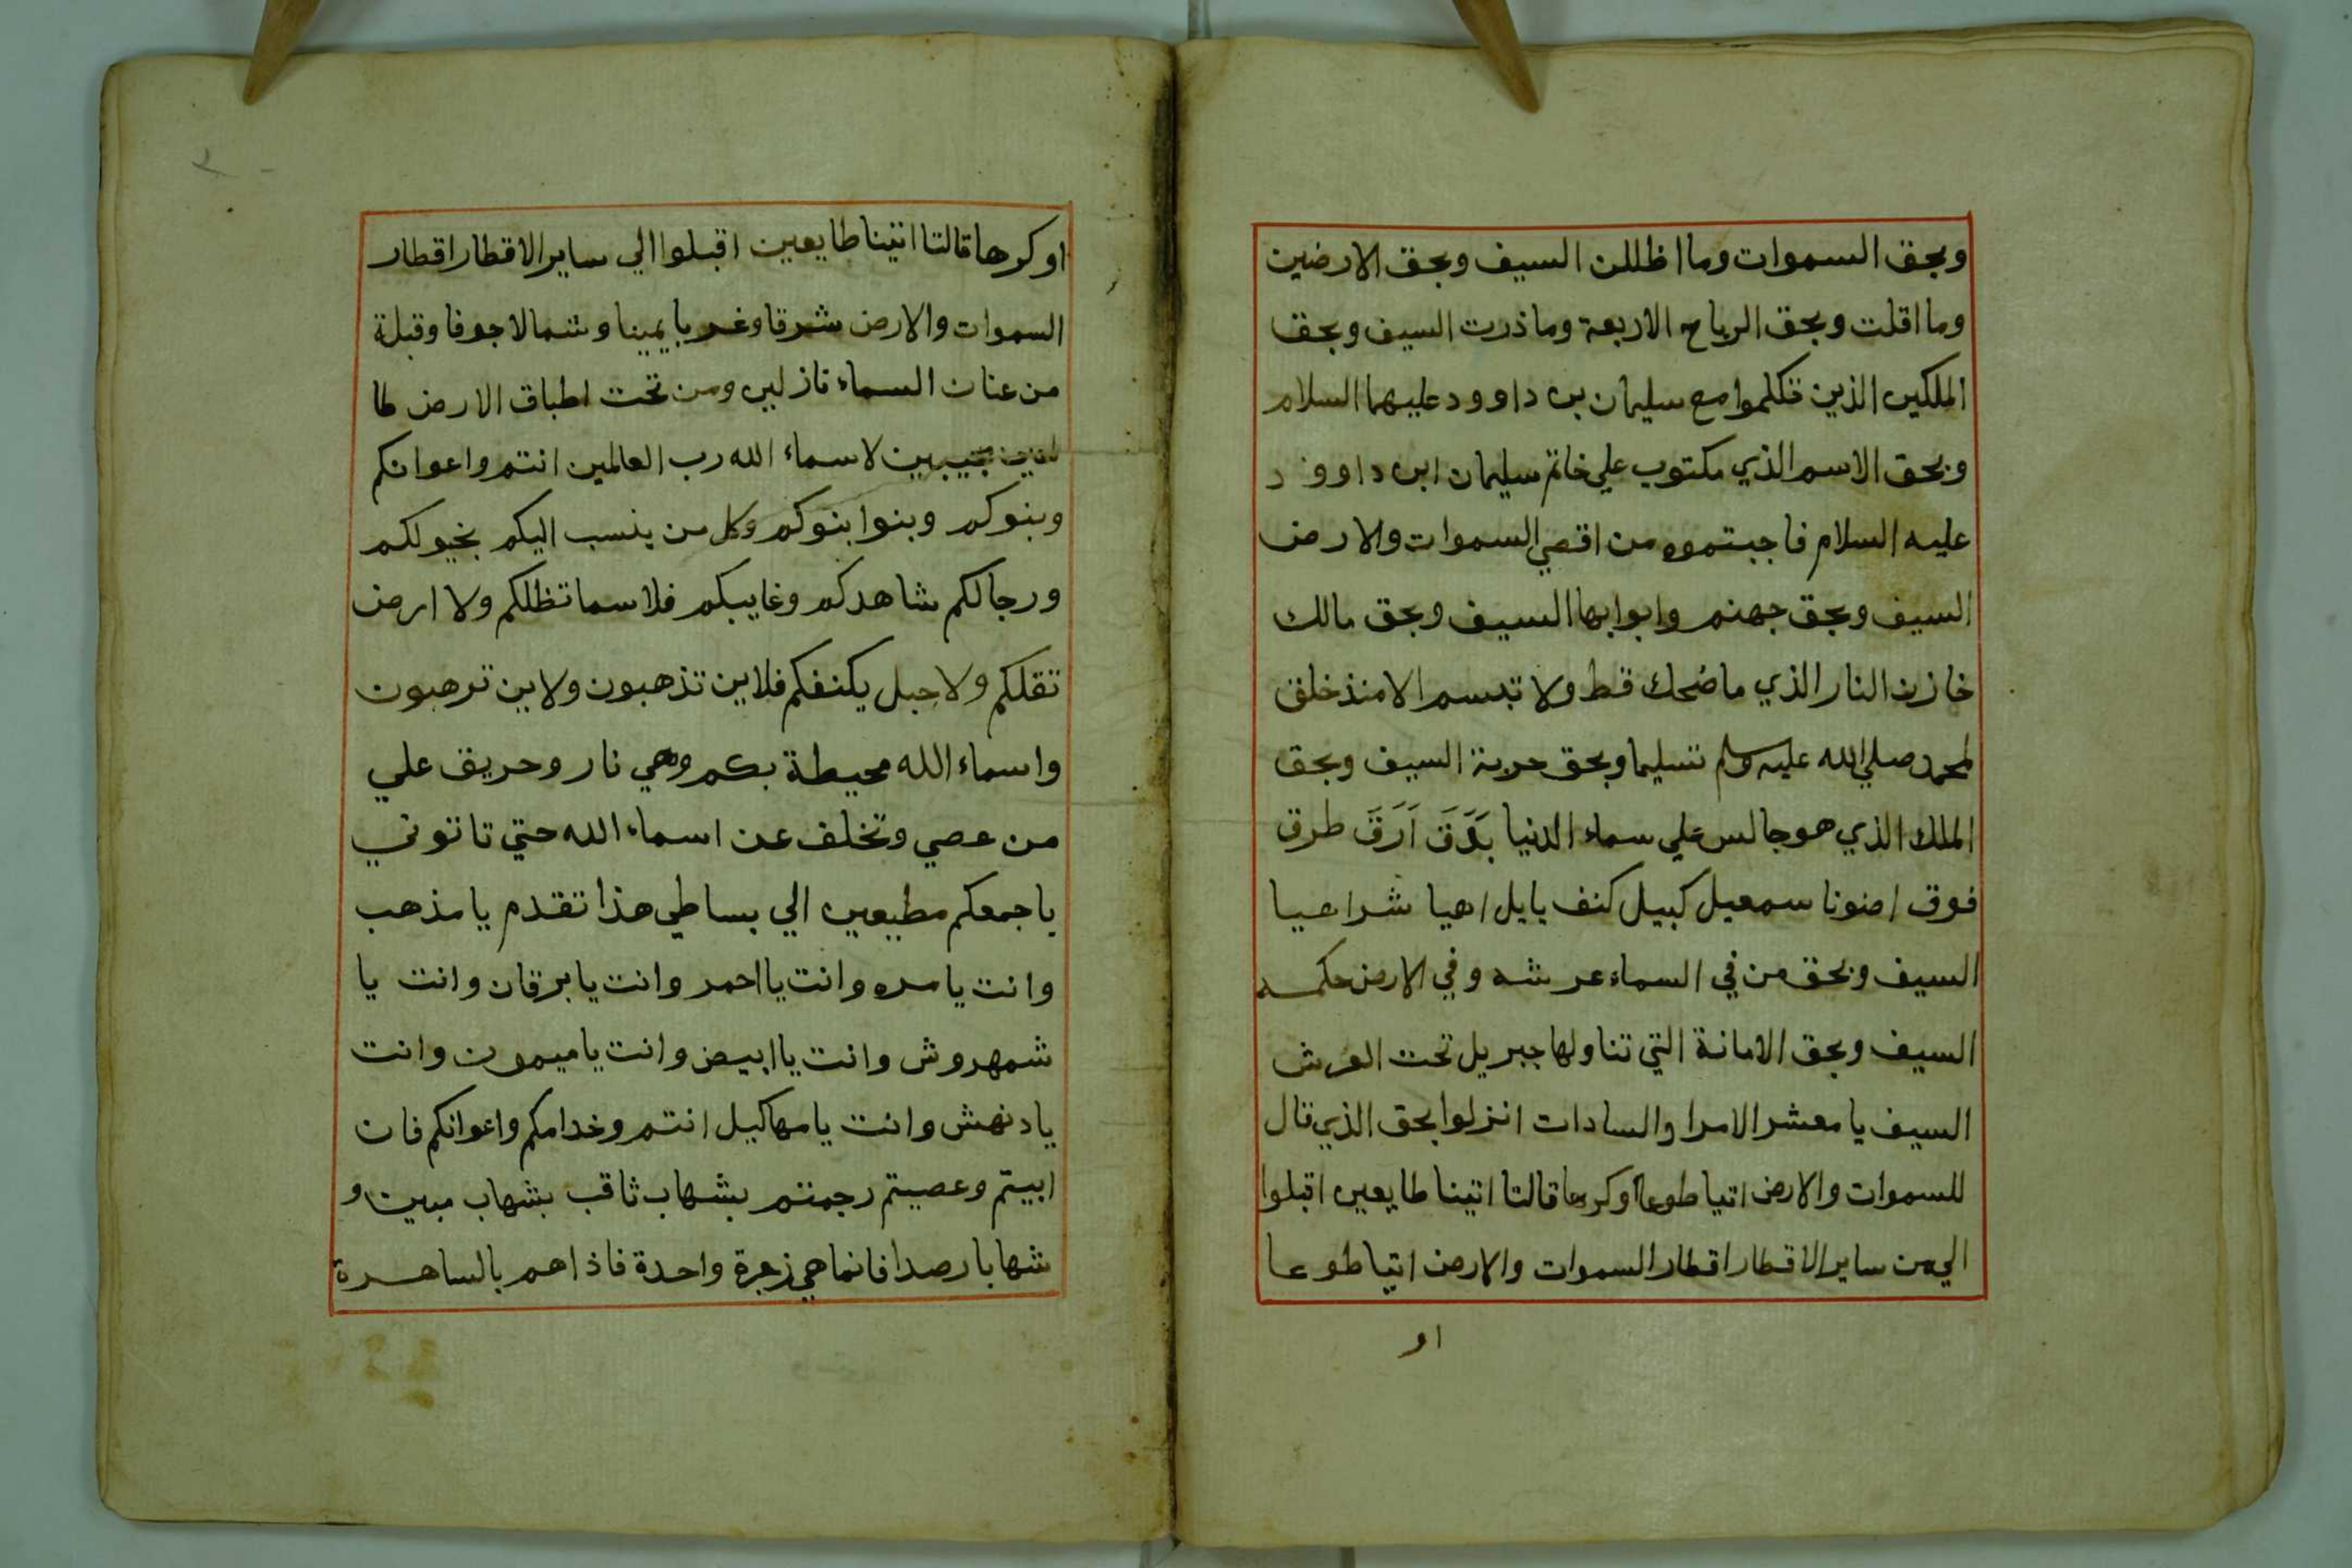 وبحق السموات وما اظللن السيف وبحق الارضين
وما اقلت وبحق الرياح الاربعة وما ذرت السيف وبحق
الملكين الذين تكلموا مع سليمان بن داوود عليهما السلام
وبحق الاسم الذي مكتوب علي خاتم سليمان ابن داوود
عليه السلام فاجبتموه من اقصي السموات والارض
السيف وبحق جهنم وابوابها السيف وبحق مالك
خازن النار الذي ما ضحك قط ولا تبسم الا منذ خلق
لمحمد صلي الله عليه وسلم تسليما وبحق حربة السيف وبحق
الملك الذي هو جالس علي سماء الدنيا بَدَقَ اَرَقَ طرق
فوق اضونا سمعيل كبيل كنف يايل اهيا شراهيا
السيف وبحق من في السماء عرشه وفي الارض حكمه
السيف وبحق الامانة التي تناولها جبريل تحت العرش
السيف يا معشر الامرا والسادات انزلوا بحق الذي قال
للسموات والارض اتيا طوعا اوكرها قالتا اتينا طايعين اقبلوا
الي من ساير الاقطار اقطار السموات والارض اتيا طوعا
او
اوكرها قالتا اتينا طايعين اقبلوا الي ساير الاقطار اقطار
السموات والارض شرقا وغربا يمينا وشمالا جوفا وقبلة
من عنان السماء نازلين ومن تحت اطباق الارض طا
لعين مجيبين لاسماء الله رب العالمين انتم واعوانكم
وبنوكم وبنوا بنوكم وكل من ينسب اليكم بخيولكم
ورجالكم شاهدكم وغايبكم فلا سما تظلكم ولا ارض
تقلكم ولا جبل يكنفكم فلاين تذهبون ولاين ترهبون
واسماء الله محيطة بكم وهي نار وحريق علي
من عصي وتخلف عن اسماء الله حتي تاتوني
باجمعكم مطيعين الي بساطي هذا تقدم يا مذهب
وانت يا مره وانت يا احمر وانت يا برقان وانت يا
شمهروش وانت يا ابيض وانت يا ميمون وانت
يا دنهش وانت يا مهاكيل انتم وخدامكم واعوانكم فان
ابيتم وعصيتم رجمتم بشهاب ثاقب بشهاب مبين و
شهابا رصدا فانما هي زجرة واحدة فاذا هم بالساهرة